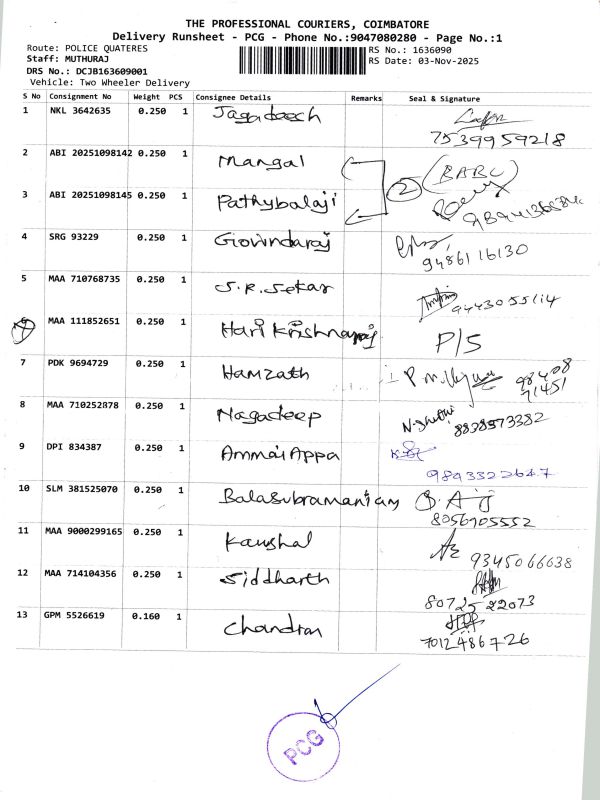 THE PROFESSIONAL COURIERS, COIMBATORE
Delivery Runsheet - PCG - Phone No.:9047080280 - Page No.:1
Route: POLICE QUATERES RS No.: 1636090
Staff: MUTHURAJ RS Date: 03-Nov-2025
DRS No.: DCJB163609001
Vehicle: Two Wheeler Delivery
S No Consignment No Weight PCS Consignee Details Remarks Seal & Signature
1 NKL 3642635 0.250 1 Jagadeech
7539959218
2 ABI 20251098142 0.250 1 Mangal (BABC)
2
3 ABI 20251098145 0.250 1 Pathybalaji
4 SRG 93229 0.250 1 Giovindaraj
9486116130
5 MAA 710768735 0.250 1 S.R.Sekar
9443055114
6 MAA 111852651 0.250 1 Hari Krishnaraj P/S
7 PDK 9694729 0.250 1 Hamzath
98408
71451
8 MAA 710252878 0.250 1 Nagadeep
8838573382
9 DPI 834387 0.250 1 Ammai Appa
9893322647
10 SLM 381525070 0.250 1 Balasubramaniam
8056905552
11 MAA 9000299165 0.250 1 Kaushal
9345066638
12 MAA 714104356 0.250 1 Siddharth
8072522073
13 GPM 5526619 0.160 1 Chandran
7012486726
PCG